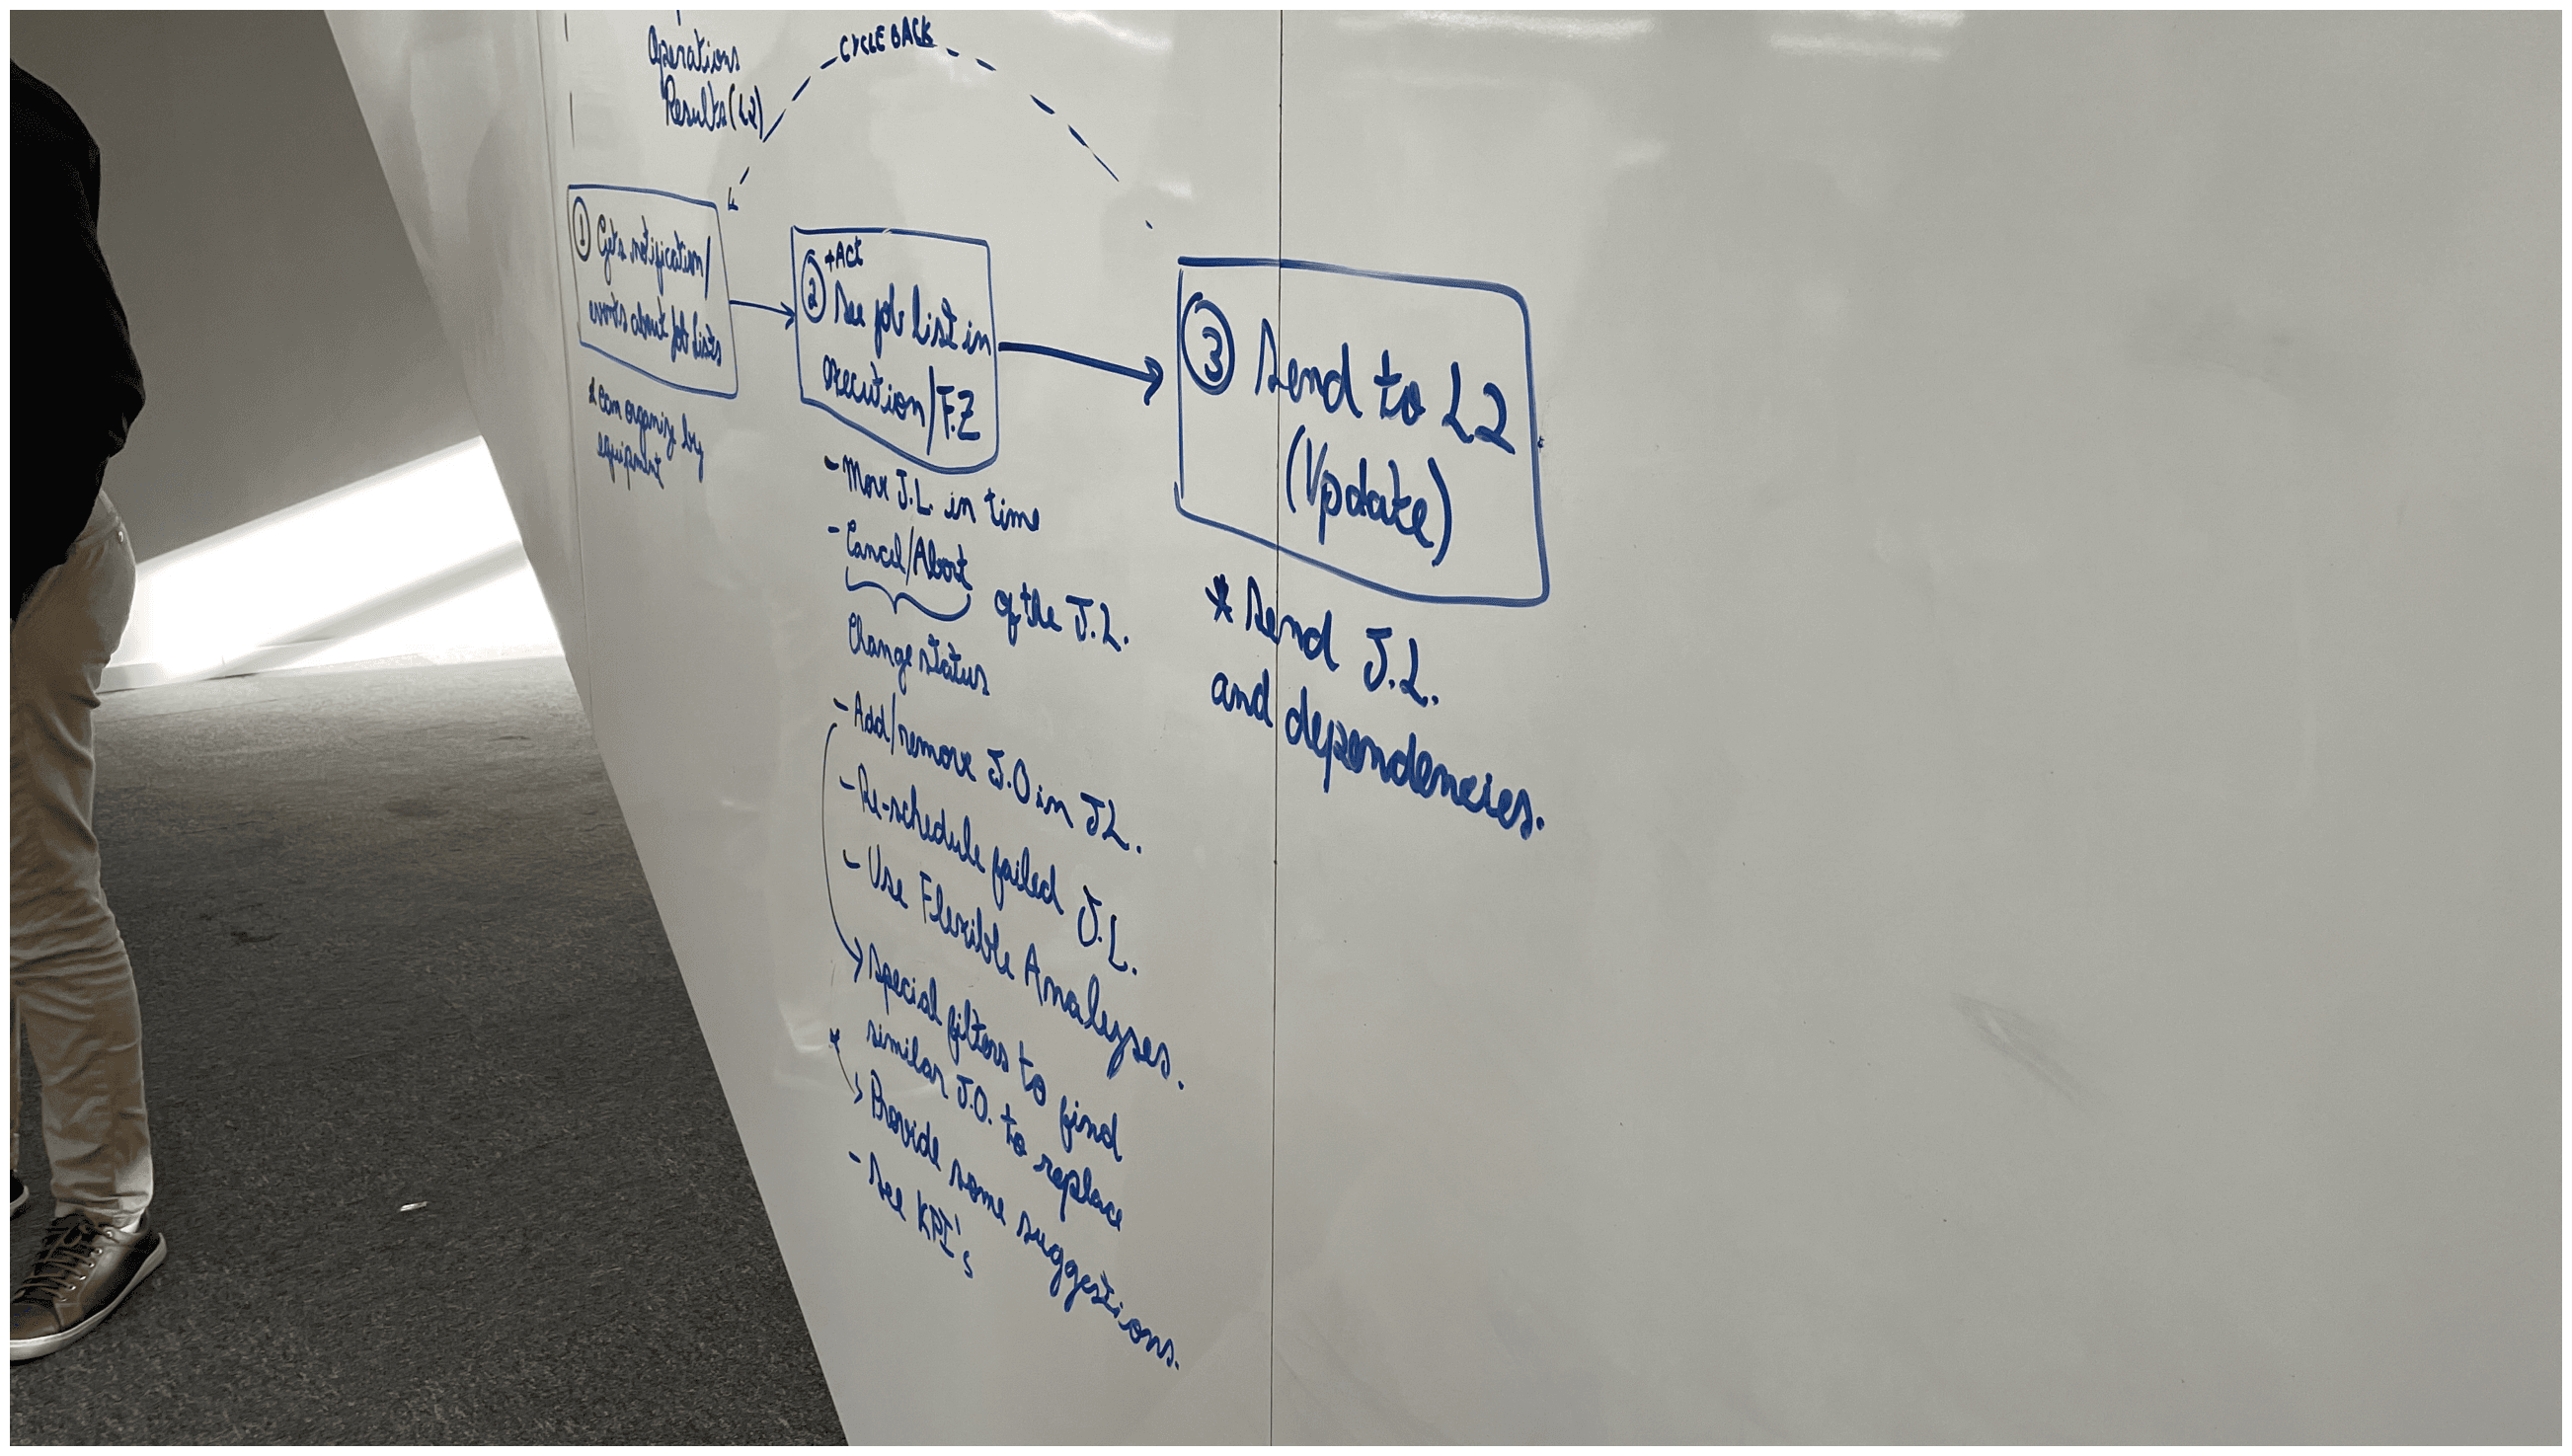 Operations
Results (L2)
CYCLE BACK
① Gets notification/
about job lists
* Can organize by
equipment
+Act
② See job list in
execution/F.Z
- Move J.L. in time
- Cancel/Abort
of the J.L.
Change status
- Add/remove J.O in JL.
- Re-schedule failed J.L.
- Use Flexible Analyses.
→ Special filters to find
similar J.O. to replace
→ Provide some suggestions.
- See KPI's
③ Send to L2
(Update)
* Send J.L.
and dependencies.